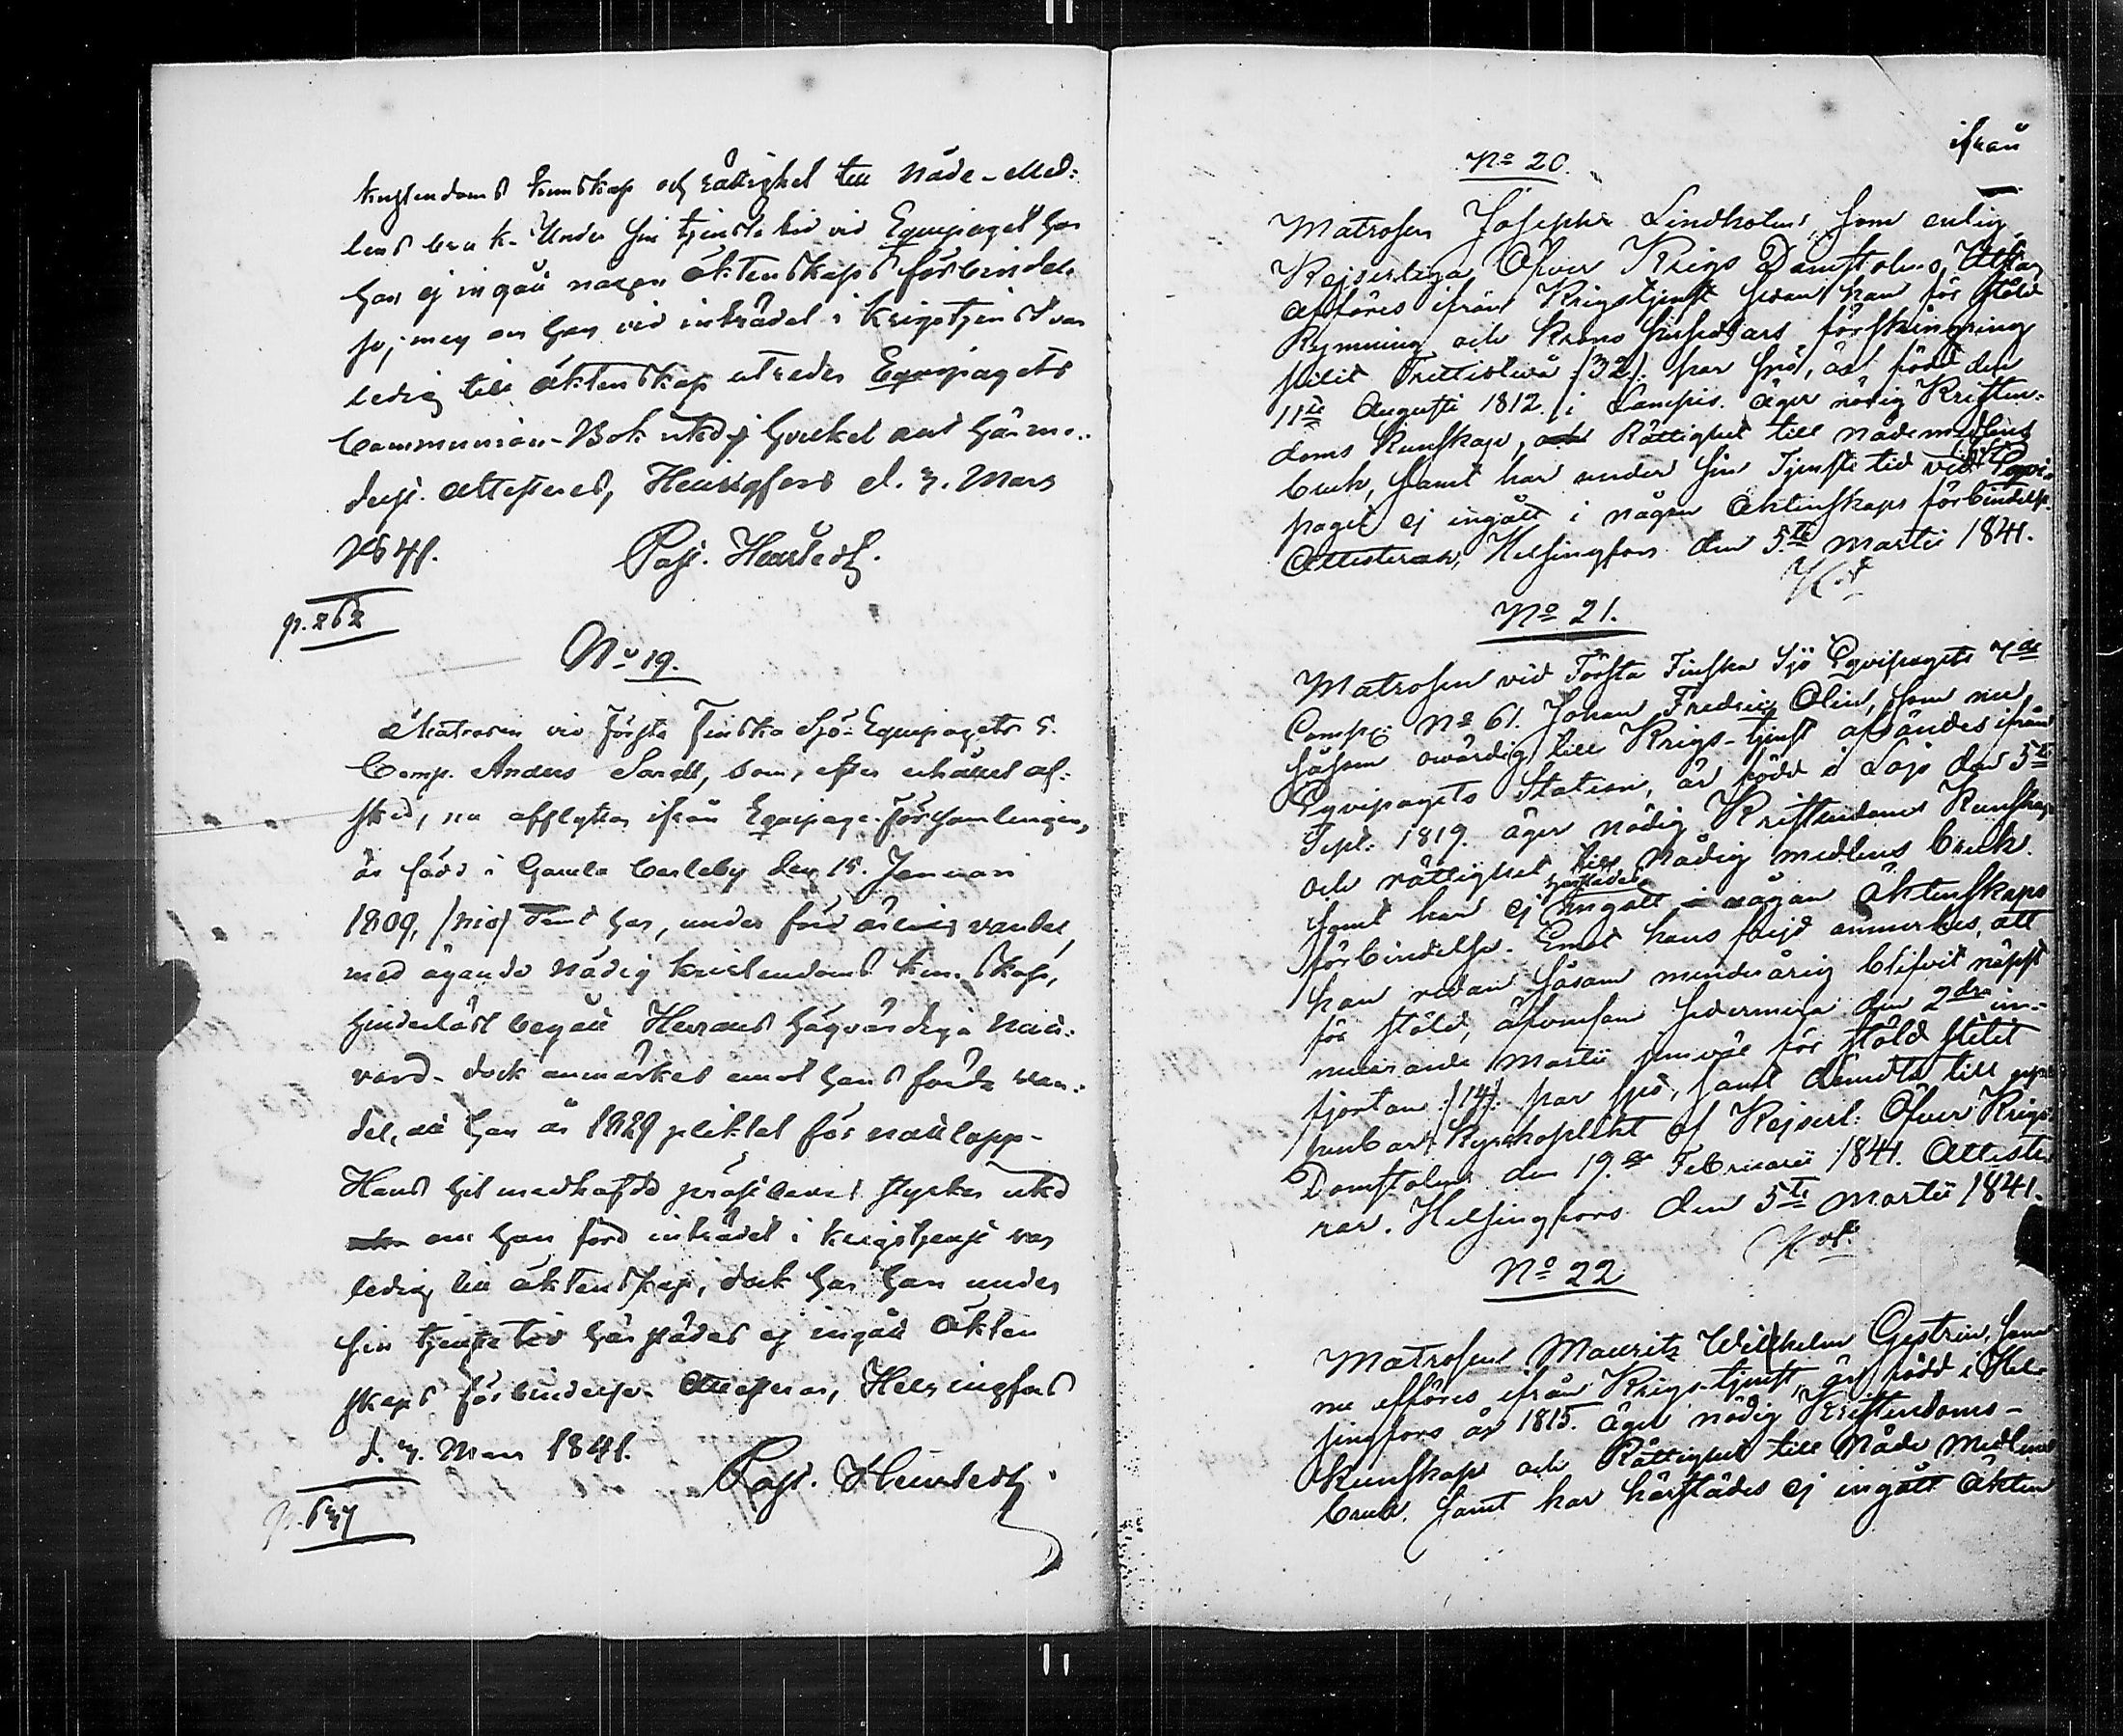 kristendoms kunskap och rättighet till Nåde-Med-
lens bruk. Under sin tjenste tid vid Equipaget har
han ej ingått någon äktenskaps förbindel-
se, men om han vid inträdet i Krigstjenst var
ledig till äktenskap utreder Equipagets
Communion-Bok
attesteras, Helsingfors d. 3. Mars
1841. Past.
p. 262
No 19.
Matrosen vid Första Finska Sjö-Equipagets 5.
Comp. Anders Sardt, som, efter erhållet af-
sked, nu afflyttar ifrån Equipage-Församlingen,
är född i Gamla Carleby den 15. Januari
1809, /nio/ samt har, under förd ärlig vandel,
med ägande nödig kristendoms kunskap,
hinderlöst begått Herrans Högvärdiga Natt-
vard. dock anmärkes emot hans förda van-
del, att han år 1829 pliktat för
Hans hit medhafda prestbevis styrker
om han före inträdet i krigstjenst var
ledig till äktenskap, dock har han under
sin tjenste tid härstädes ej ingått Äkten
skaps förbindelse. Attesterar, Helsingfors
d. 3. Mars 1841.
Past.
p. 637
ifrån
No 20.
Matrosen Joseph Lindholm, som enlig
Kejserliga Öfver Krigs Domstolens Utslag
afföres ifrån Krigstjenst sedan han för stöld
Rymning och Krono förskingring
slitit Trettiotvå /:32:/ par spö, är född den
11te Augusti 1812 i Lampis. äger nödig Kristen-
doms Kunskap, och Rättighet till nådemedlens
bruk, samt har under sin Tjenste tid vid Eqvi-
paget ej ingått i någon äktenskaps förbindelse.
Attesterar, Helsingfors den 5te Martii 1841.
No 21.
Matrosen vid Första Finska Sjö Eqvipagets 7de
Comp: No 61. Johan Fredric Olin, som nu
såsom ovärdig till Krigs-tjenst afsändes ifrån
Eqvipagets Station, är född i Lojo den 5te
Sept: 1819. äger nödig Kristendoms Kunskap
och rättighet till Nådig medlens bruk
samt har ej härstädes ingått i någon äktenskaps
förbindelse. Emot hans frejd anmärkes, att
han redan såsom minderårig blifvit näpst
för stöld, äfvensom sedermera den 2dra in-
nevarande Martii jemväl för stöld slitit
fjorton /:14:/ par spö, samt dömdts till uppen-
bar Kyrkoplikt af Kejserl: Öfver Krigs
Domstolen den 19de Februarii 1841. Atteste-
rar. Helsingfors den 5te Martii 1841.
No 22
Matrosen Mauritz Willhelm Gestrin, som
nu afföres ifrån Krigs-tjenst, är född i Hel-
singfors år 1815. äger nödig Kristendoms-
Kunskap och Rättighet till Nåde Medlens
bruk. samt har härstädes ej ingått Äkten